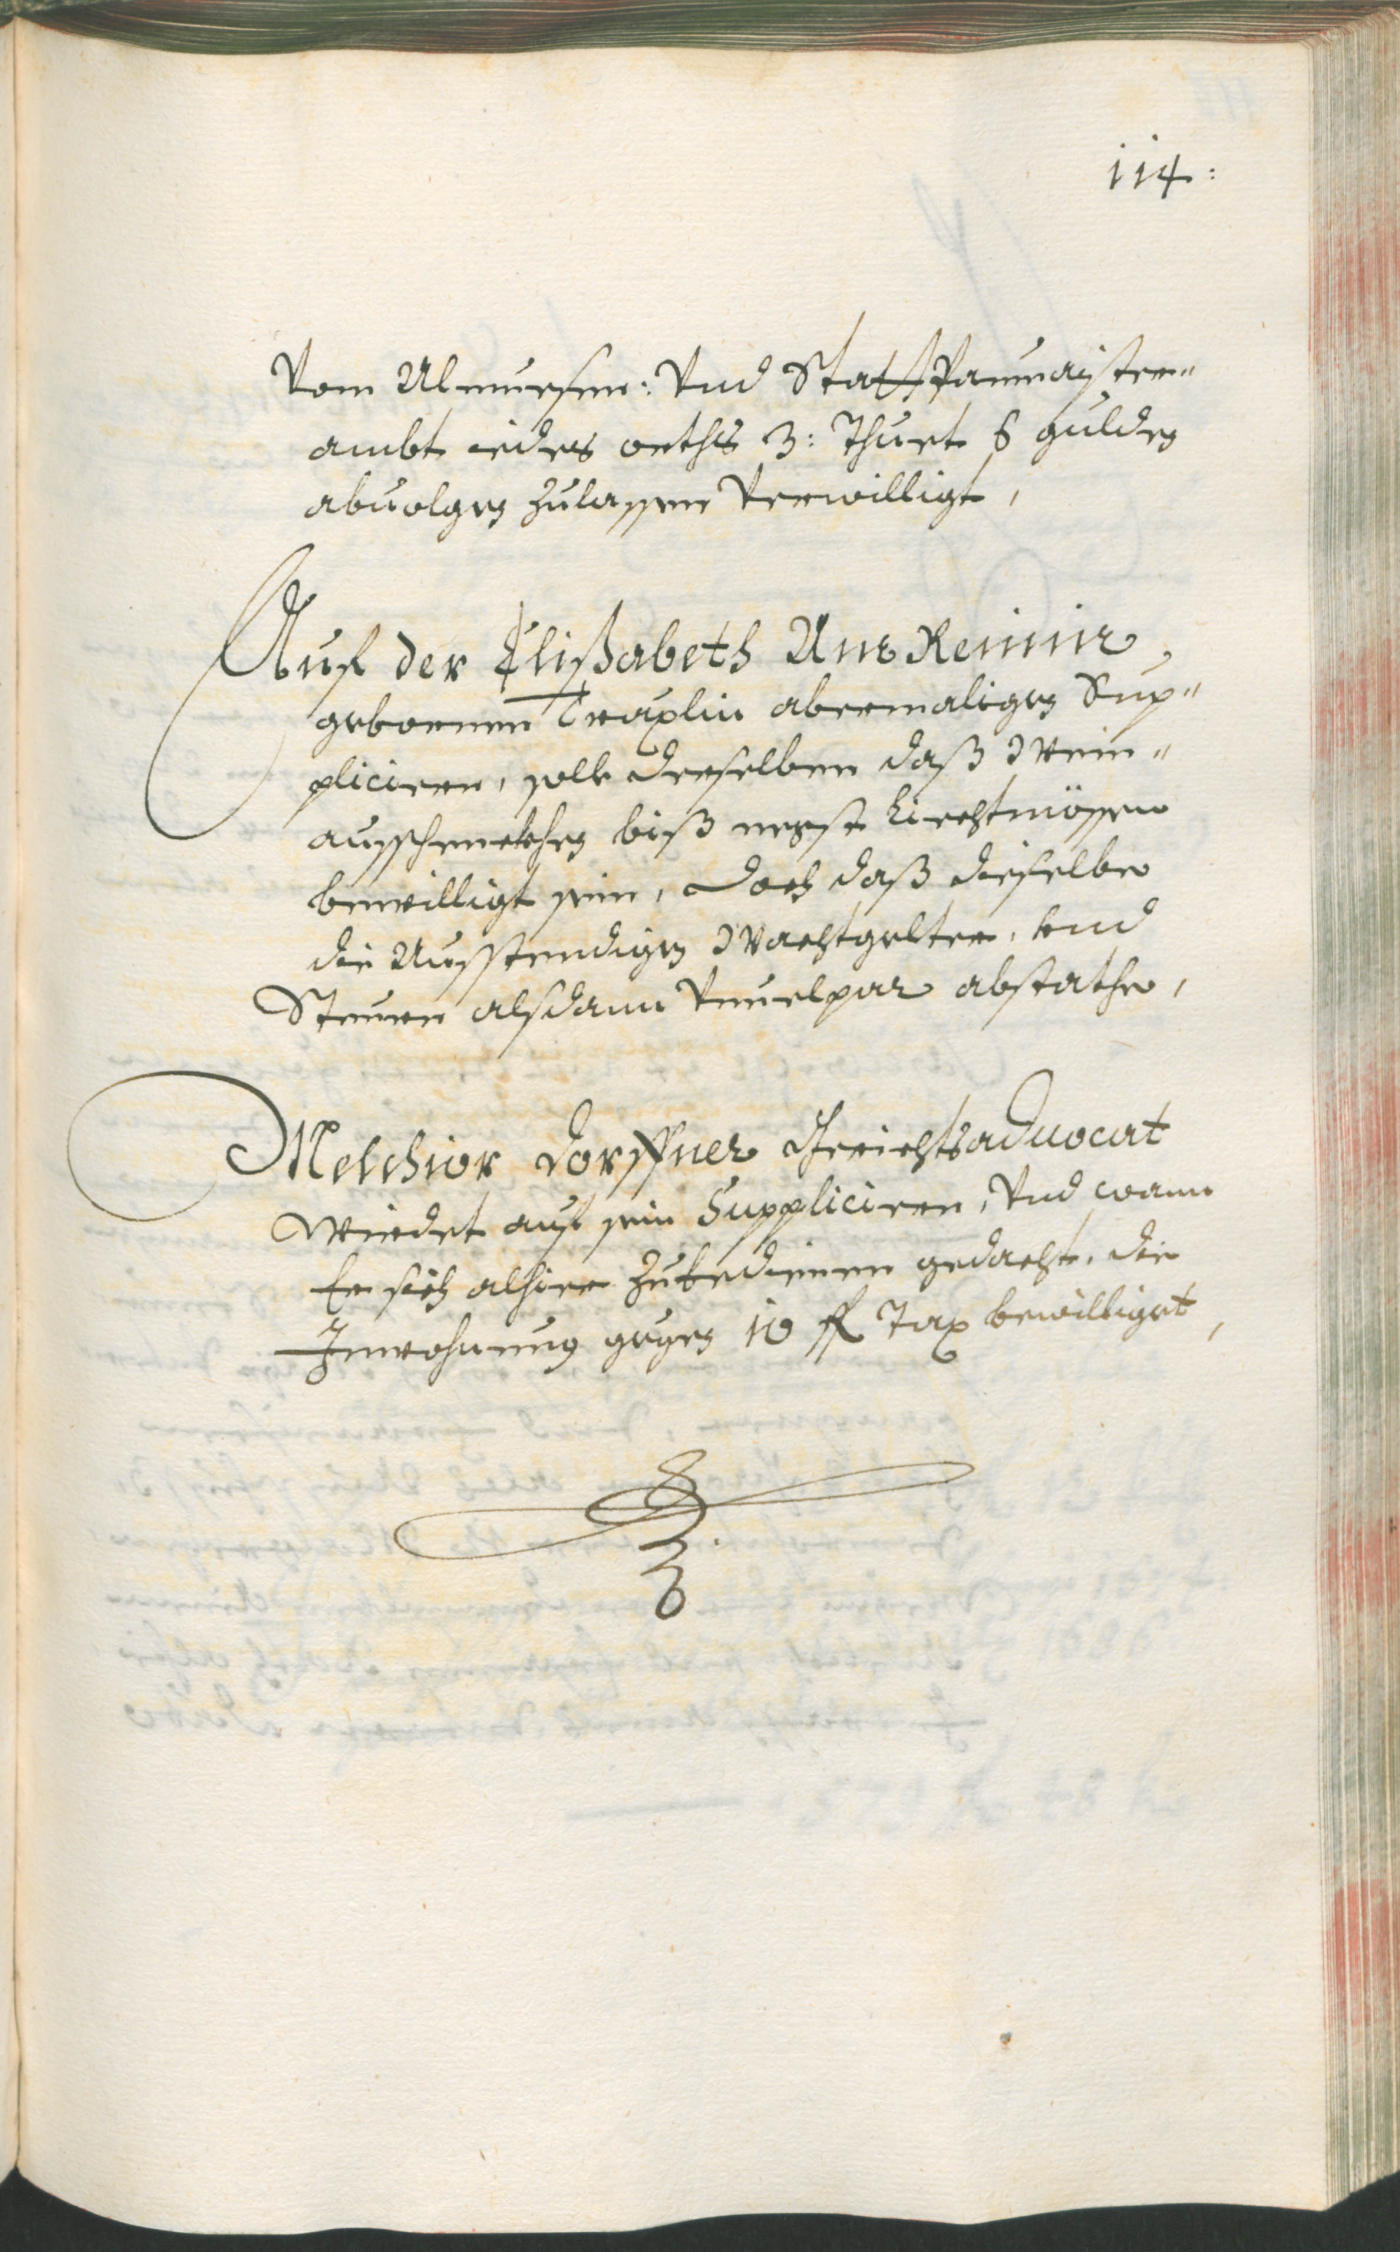 114:
Vom Almuesen: Vnd StattPaumaister=
ambt iedes orths 3: Thuet 6 gulden
abuolgen zulassen Verwilligt,
Auf der Elißabeth
gebornen Traxlin abermaliges Sup=
pliciren, solle derselben daß Wein=
ausschenckhen biß negst Liechtmössen
bewilligt sein, doch daß dieselbe
die Ausstendigen Wachtgelter, vnd
Steuern alsdann abstathe,
Melchior Dorffner Gerichtsaduocat
Wirdet auf sein Suppliciren, Vnd wann
Er sich alhier zu gedacht, die
Inwohnung gegen 10 fl Tax bewilliget,